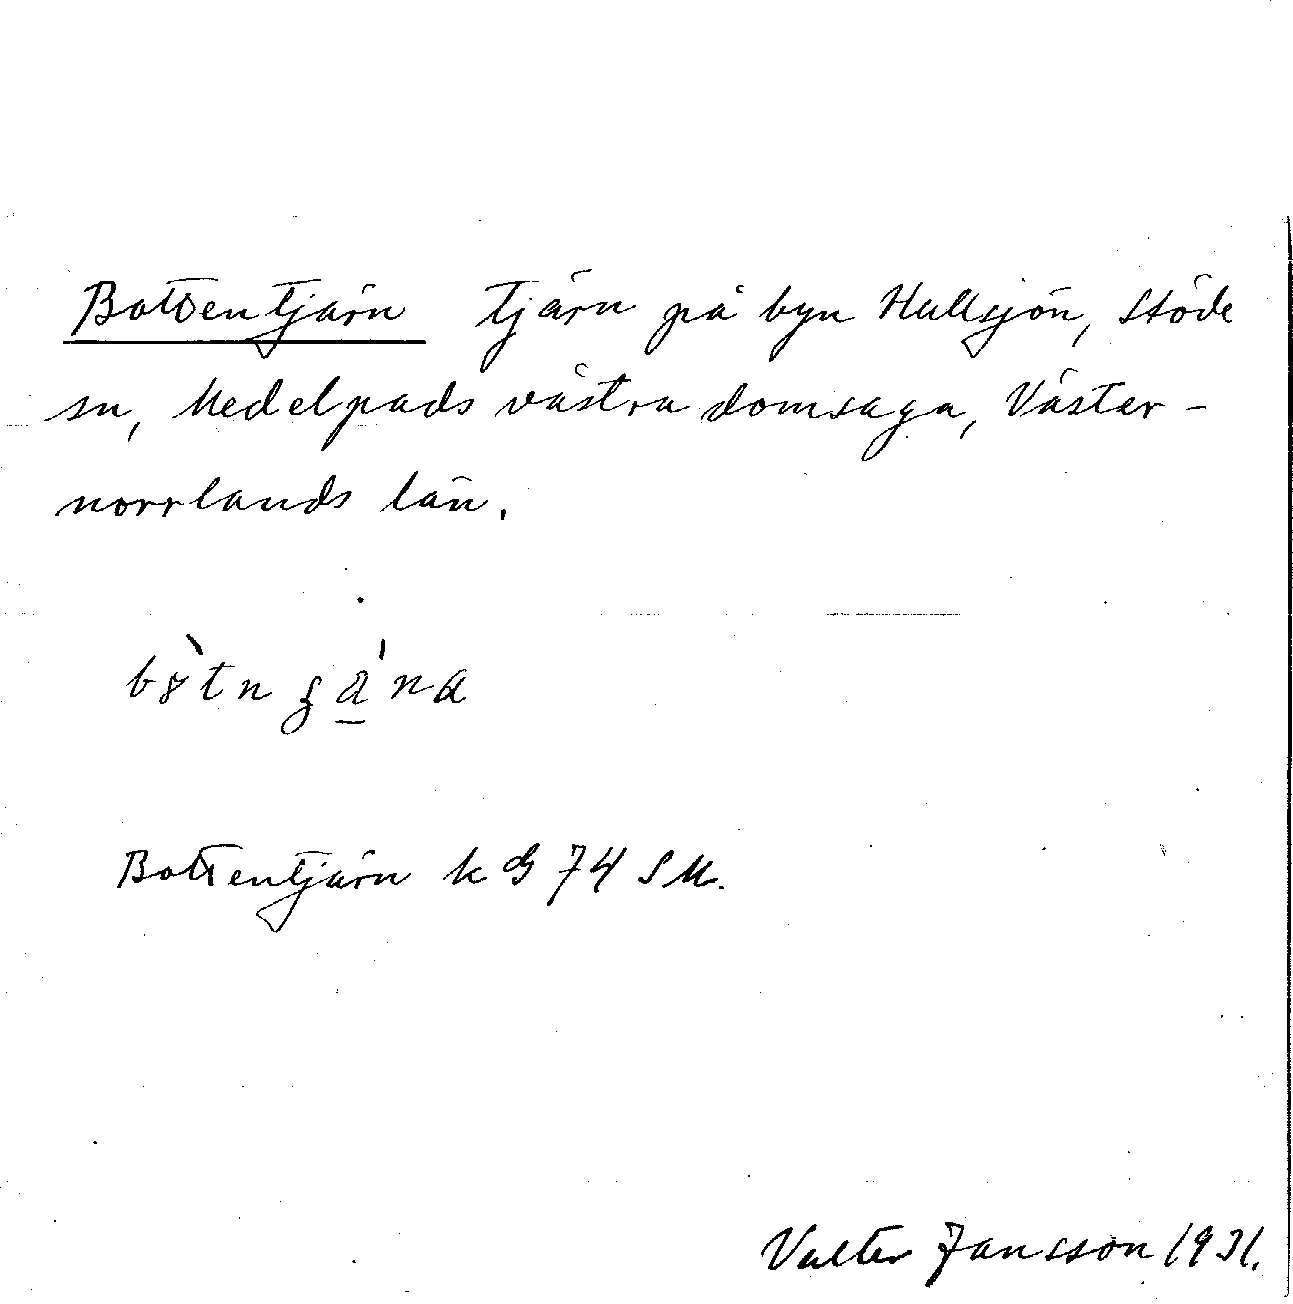 Bottentjärn tjärn på byn Hullsjön, Stöde
sn, Medelpads västra domsaga, Väster-
norrlands län.
Bottentjärn k G 74 SM.
Valter Jansson 1931.